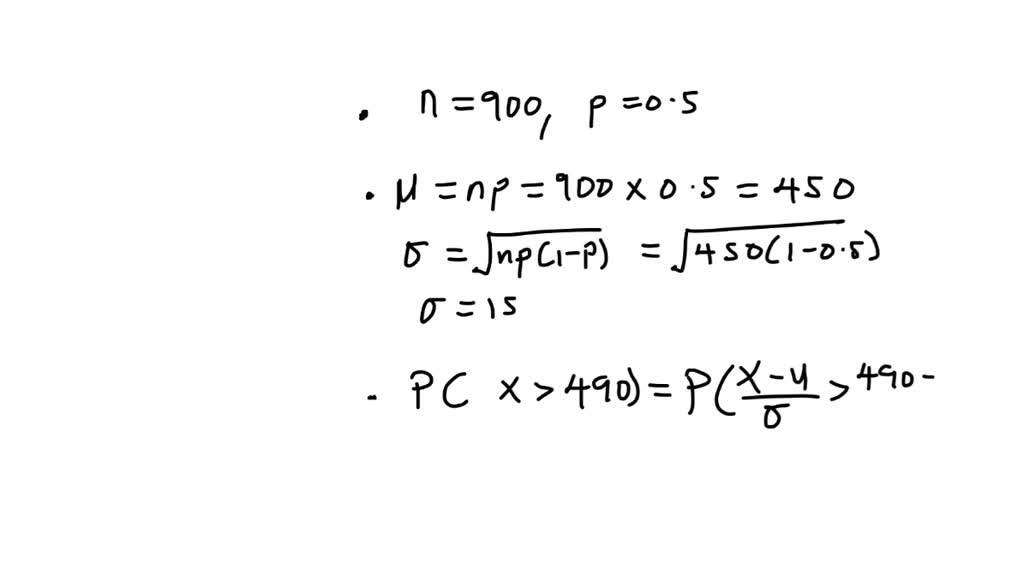 . n = 900, p = 0.5
. μ = np = 900 × 0.5 = 450
σ = √np(1-p) = √450(1-0.5)
σ = 15
. P( X > 490) = P(X-μ/σ > 490-